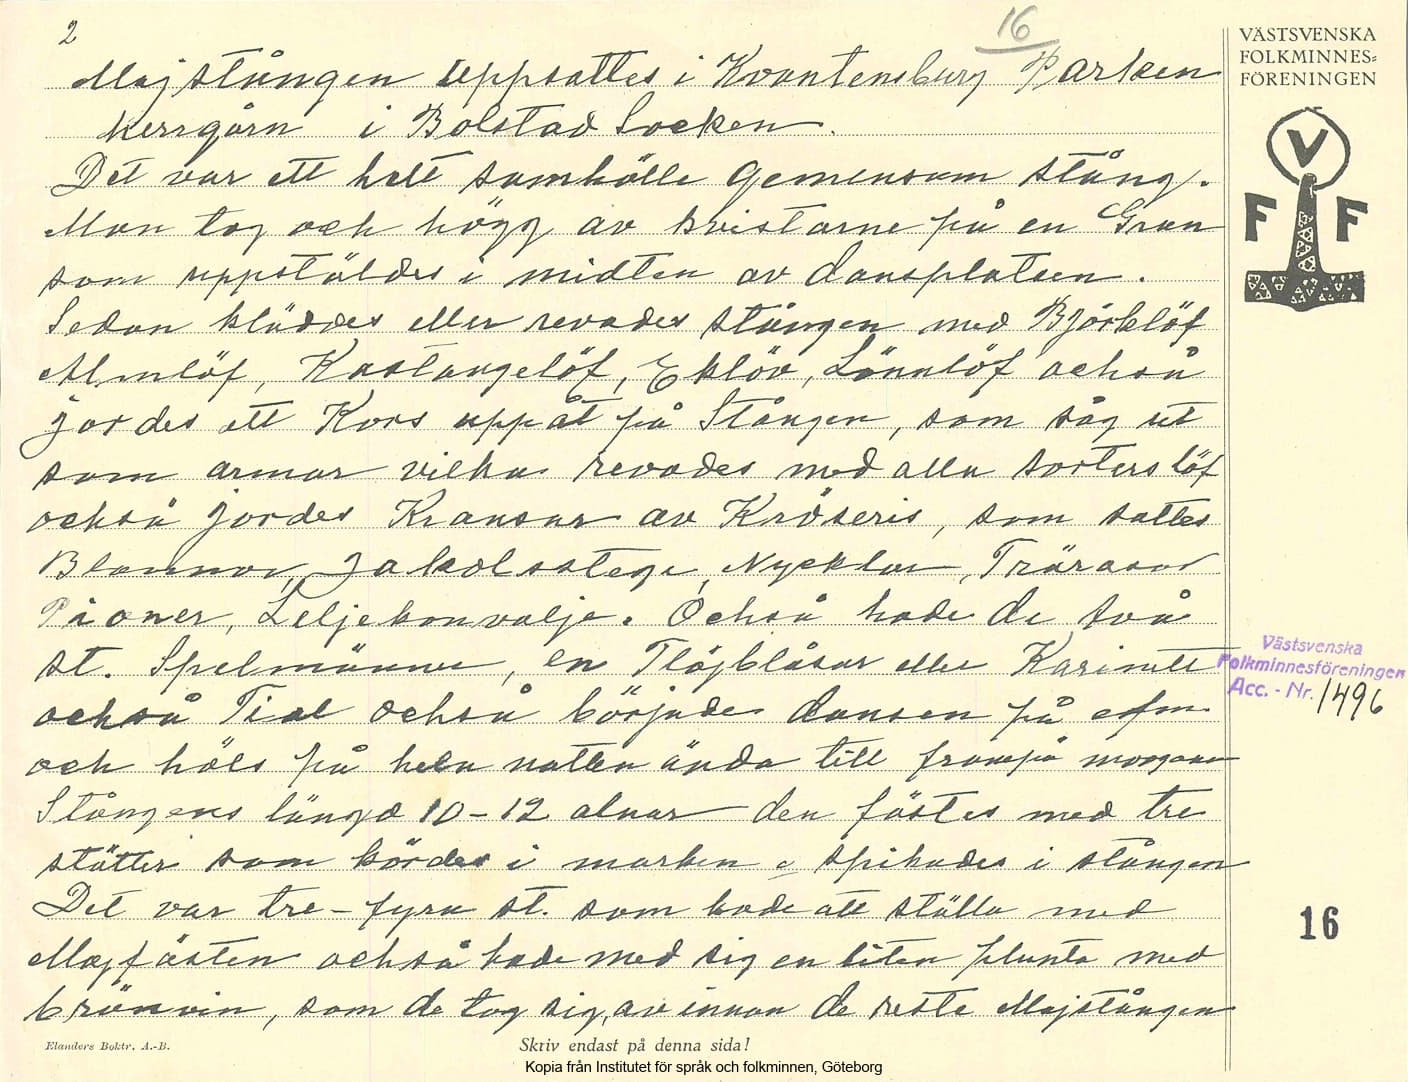 2
16
VÄSTSVENSKA
FOLKMINNES-
FÖRENINGEN
Majstången uppsattes i Kvantensburg Parken
herrgårn i Bolstad Socken.
Det var ett helt samhälle gemensam stång.
Man tog och högg av kvistarne på en Gran
som uppstäldes i midten av dansplatsen.
Sedan kläddes eller revades stången med Björklöf
Almlöf, Kastangelöf, Eklöv, Lönnlöf också
jordes ett Kors uppåt på Stången, som såg ut
som armar vilka revades med alla sorters löf
också jordes Kransar av Kröseris, som sattes
Blommor, Jakobsstege, Nycklar, Trärosor
Pioner, Leljekonvalje. Också hade de två
st. Spelmänner, en Flöjblåsar eller Karinett
också Fiol också började dansen på efm.
och höls på hela natten ända till frampå morgonen
Stångens längd 10-12 alnar den fästes med tre
stötter som kördes i marken o spikades i stången
Det var tre-fyra st. som hade att ställa med
Majfästen också hade med sig en liten plunta med
brännvin, som de tog sig, av innan de reste Majstången
V
F F
Västsvenska
Folkminnesföreningen
Acc. - Nr. 1496
16
Elanders Boktr. A.-B.
Skriv endast på denna sida!
Kopia från Institutet för språk och folkminnen, Göteborg